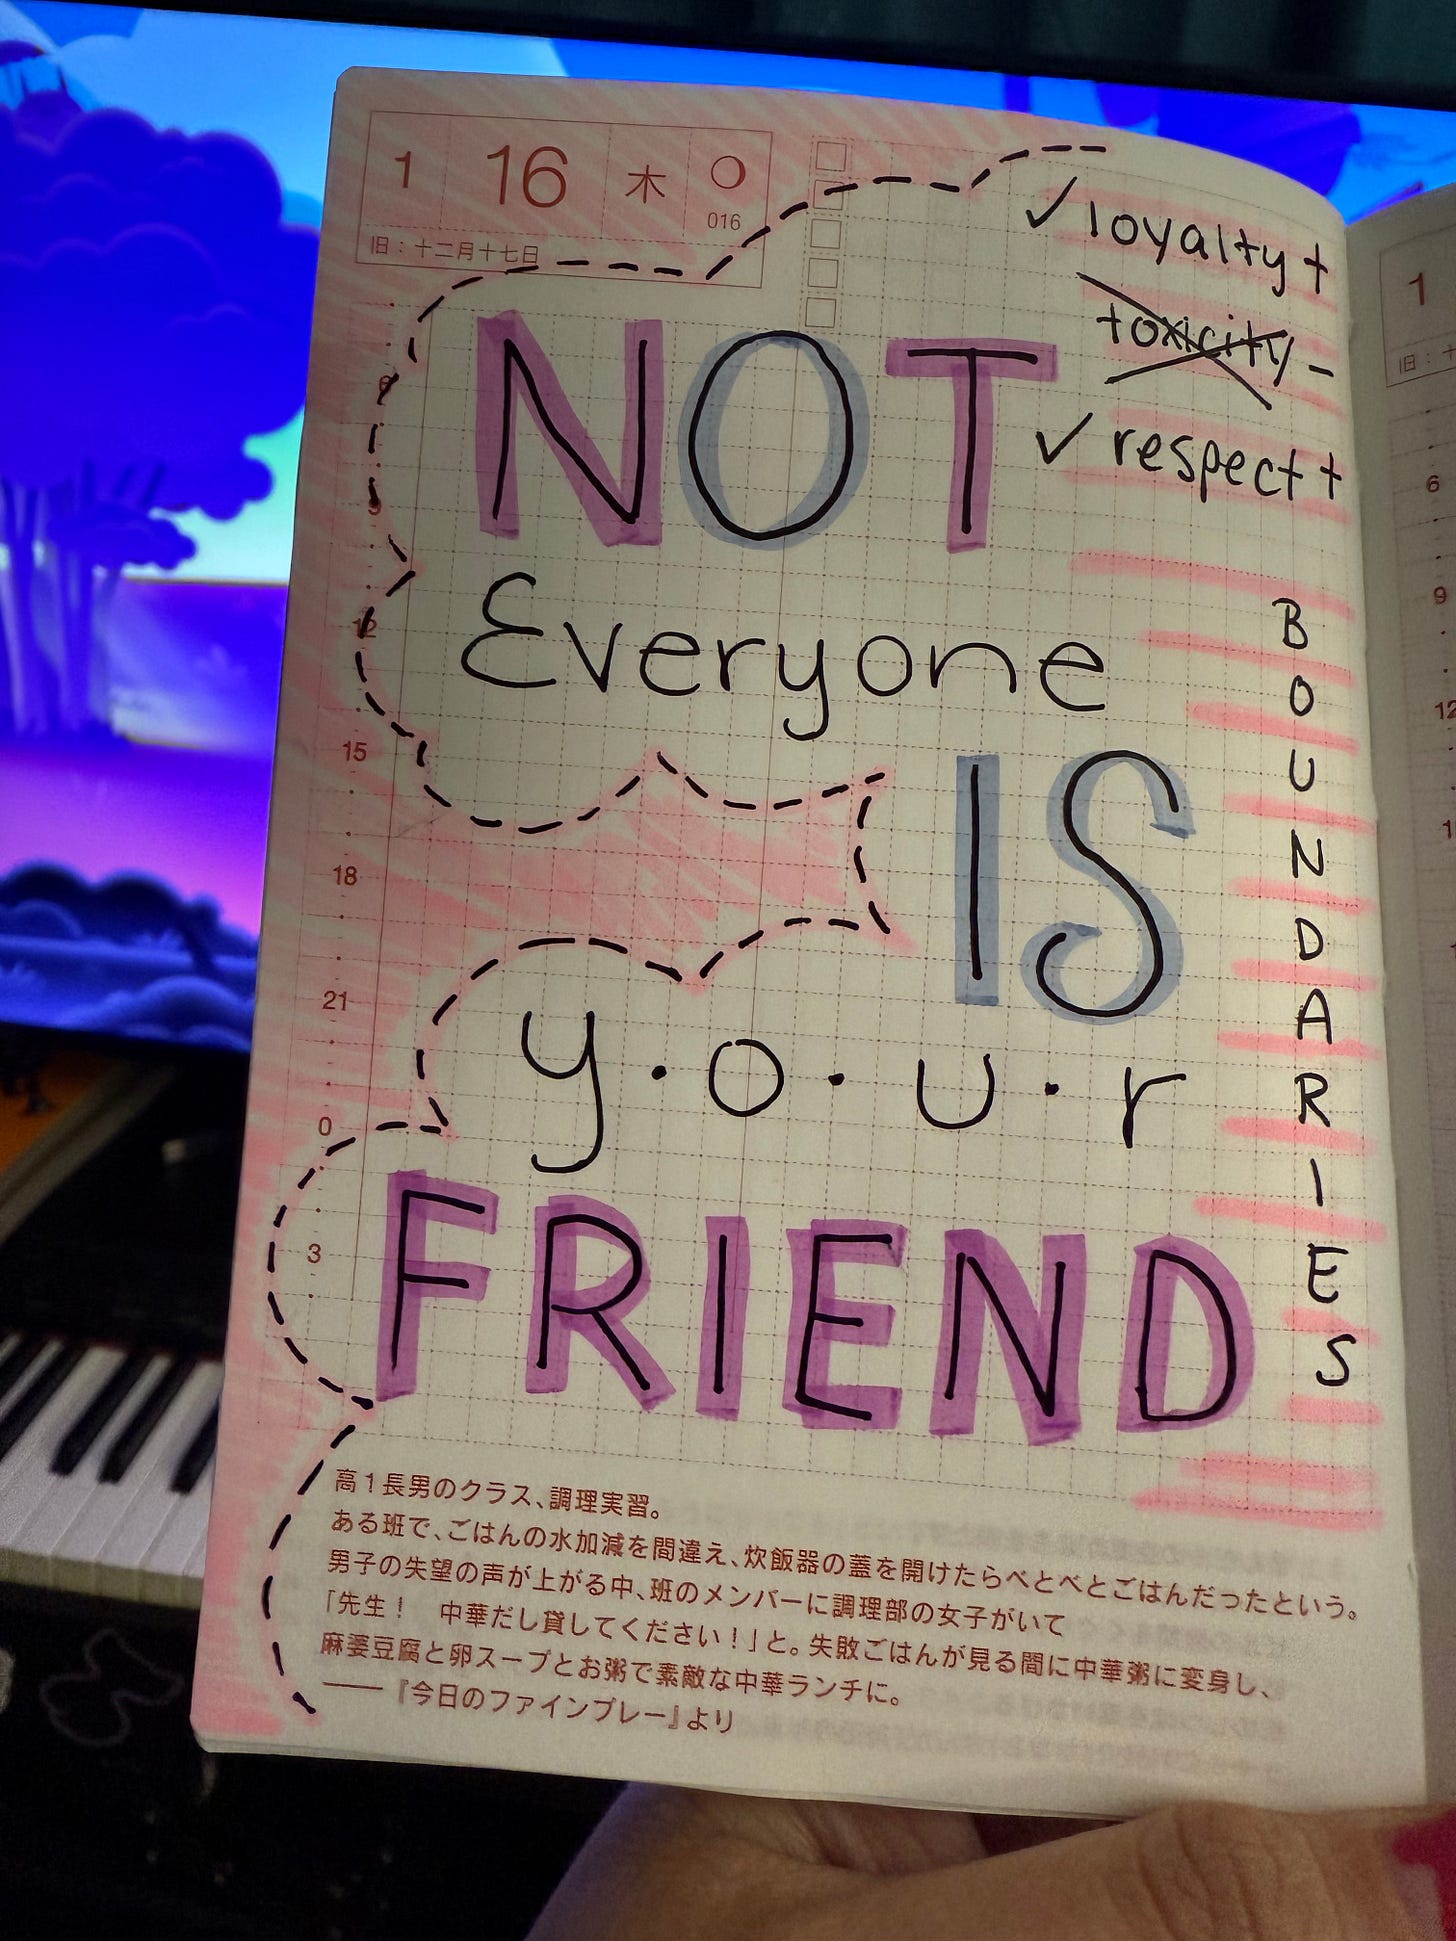 1 16 木
016
旧：十二月十七日
✓ loyalty +
toxicity -
✓ respect +
NOT
Everyone
IS
y·o·u·r
FRIEND
BOUNDARIES
6
9
12
15
18
21
0
3
高1長男のクラス、調理実習。
ある班で、ごはんの水加減を間違え、炊飯器の蓋を開けたらべとべとごはんだったという。
男子の失望の声が上がる中、班のメンバーに調理部の女子がいて
「先生！　中華だし貸してください！」と。失敗ごはんが見る間に中華粥に変身し、
麻婆豆腐と卵スープとお粥で素敵な中華ランチに。
――『今日のファインプレー』より
1
旧：十
6
9
12
1